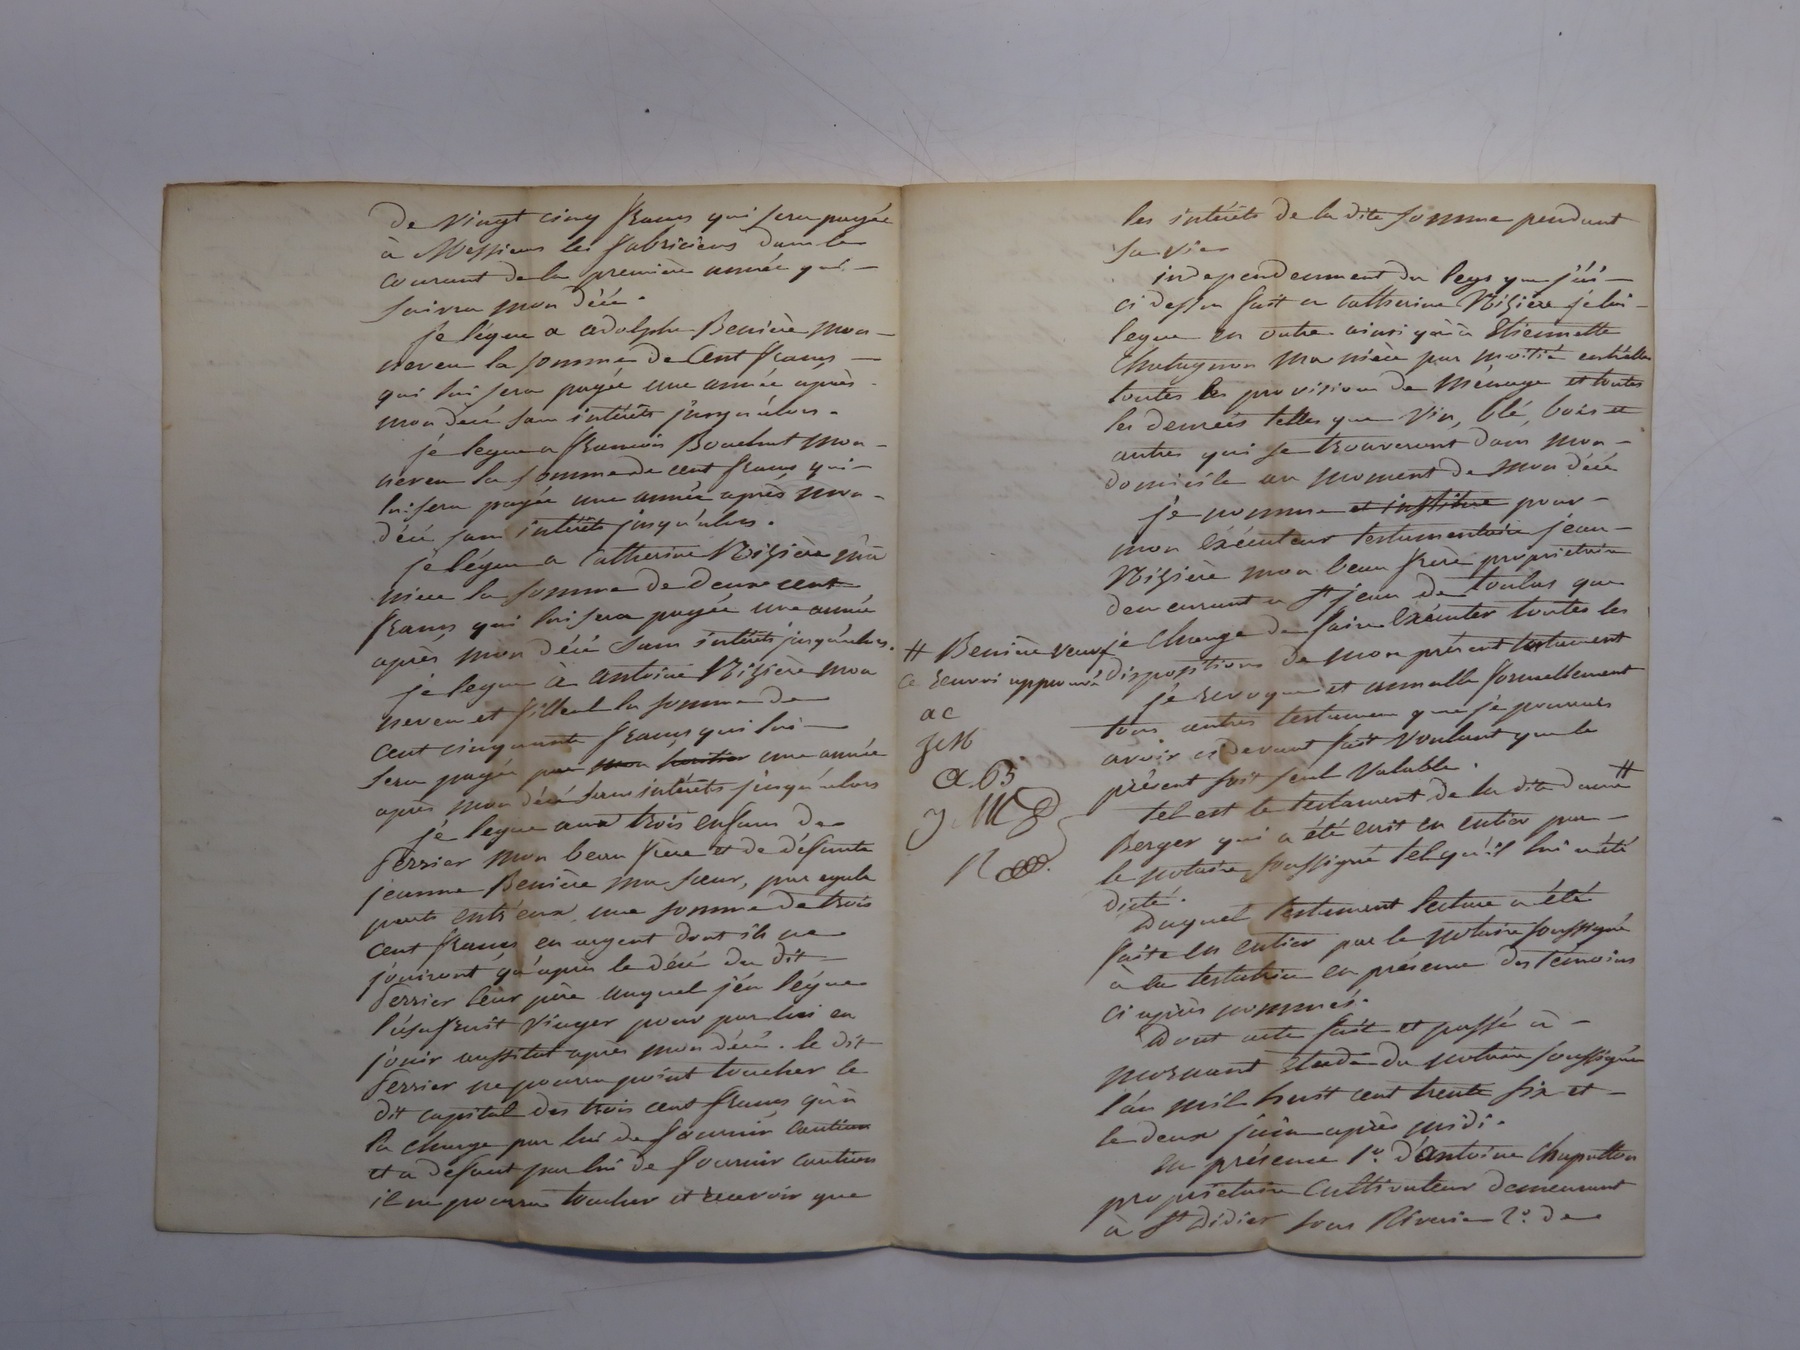 de vingt cinq francs qui sera payée
à Messieurs les fabriciens dans le
courant de la première année qui
suivra mon décé.
je légue a adolphe Benière mon
neveu la somme de Cent francs
qui lui sera payée une année après
mon décé sans intérêts jusqu'alors.
je legue a francois Bouchut mon
neveu la somme de cent francs qui
lui sera payée une année après mon
décé sans intérêts jusqu'alors.
je légue a Catherine Nizière ma
niece la somme de deux cent
francs qui lui sera payée une année
après mon décé sans intérêts jusqu'alors.
je legue à antoine Nizière mon
neveu et filleul la somme de
cent cinquante francs qui lui
sera payée par mon héritier une année
après mon décé sans intérêts jusqu'alors
je légue aux trois enfans de
ferrier mon beau frere et de défunte
jeanne Benière ma sœur, par egale
parts entr'eux, une somme de trois
cent francs en argent dont ils ne
jouiront qu'après le décé du dit
ferrier leur père auquel j'en légue
l'usufruit viager pour par lui en
jouir aussitot après mon décé. le dit
ferrier ne pourra point toucher le
dit capital des trois cent francs qu'à
la charge par lui de fournir caution
et a defaut par lui de fournir caution
il ne pourra toucher et recevoir que
les intérêts de la dite somme pendant
sa vie
independemment du legs que j'ai
ci dessu fait a catherine Nizière je lui
legue en outre ainsi qu'à Etiennette
ma nièce par moitié entr'elles
toutes les provisions de ménage et toutes
les denrées telles que vin, blé, bois et
autres qui se trouveront dans mon
domicile au moment de mon décé
je nomme et institue pour
mon éxécuteur testamentaire jean
Nizière mon beau frere propriétaire
demeurant a St jean de toulas que
je charge de faire éxécuter toutes les
dispositions de mon présent testament
je revoque et annulle formellement
tous autres testamens que je pourrais
avoir ci devant fait voulant que le
présent soit seul valable.
tel est le testament de la dite dame #
Berger qui a été ecrit en entier par
le notaire soussigné tel qu'il lui a été
dicté.
Duquel testament lecture a été
faite en entier par le notaire soussigné
à la testatrice en présence des témoins
ci après nommés.
Dont acte fait et passé à
mornant étude du notaire soussigné
l'an mil huit cent trente six et
le deux juin après midi.
en présence 1o. d'antoine Chaputton
propriétaire cultivateur demeurant
à St didier sous Riverie 2o. de
# Benière veuve
ce renvoi approuvé
ac